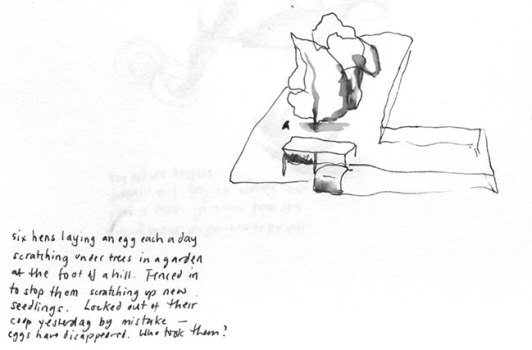 six hens laying an egg each a day
scratching under trees in a garden
at the foot of a hill. Fenced in
to stop them scratching up new
seedlings. Locked out of their
coop yesterday by mistake —
eggs have disappeared. Who took them?